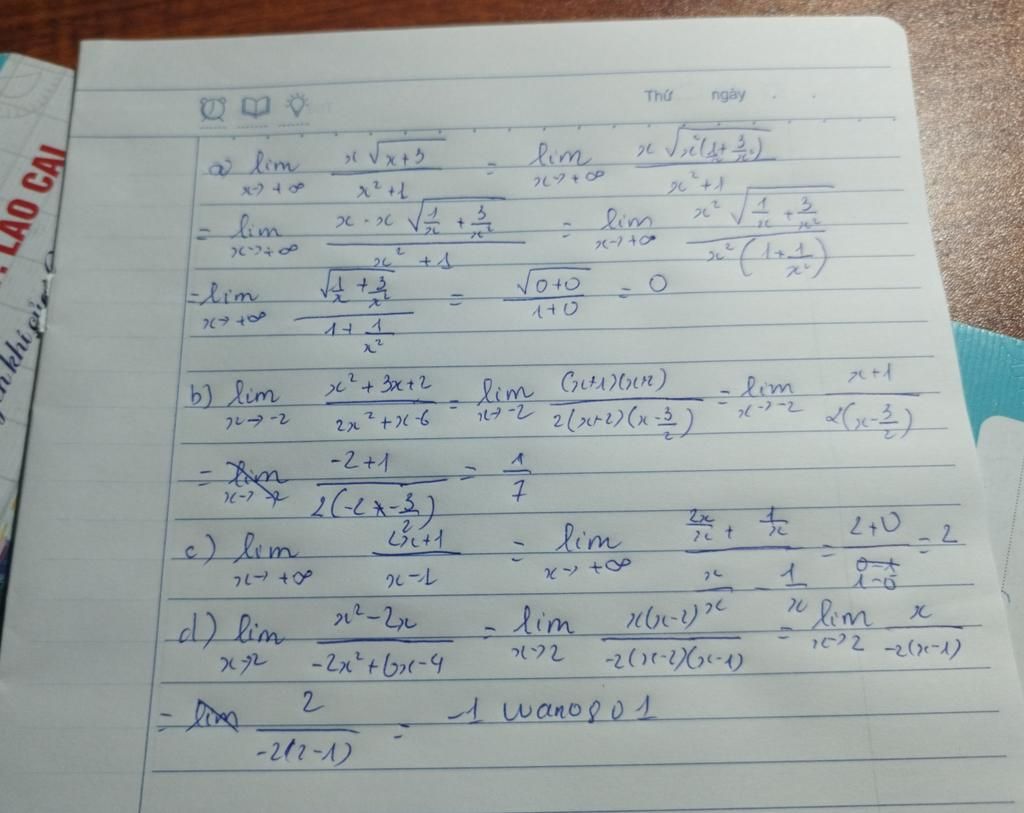 LAO CAI
Thứ ngày . .
a) lim x→+∞ x√(x+3) / (x²+1) = lim x→+∞ x√(x²(1/x + 3/x²)) / (x²+1)
= lim x→+∞ x·x√(1/x + 3/x²) / (x²+1) = lim x→+∞ x²√(1/x + 3/x²) / x²(1 + 1/x²)
= lim x→+∞ √(1/x + 3/x²) / (1 + 1/x²) = √(0+0) / (1+0) = 0
b) lim x→-2 (x²+3x+2) / (2x²+x-6) = lim x→-2 (x+1)(x+2) / 2(x+2)(x-3/2) = lim x→-2 (x+1) / 2(x-3/2)
= lim x→-2 (-2+1) / 2(-2-3/2) = 1/7
c) lim x→+∞ (2x+1) / (x-1) = lim x→+∞ (2x/x + 1/x) / (x/x - 1/x) = (2+0) / (1-0) = 2
d) lim x→2 (x²-2x) / (-2x²+6x-4) = lim x→2 x(x-2) / -2(x-2)(x-1) = lim x→2 x / -2(x-1)
= lim 2 / -2(2-1) = -1 wano801